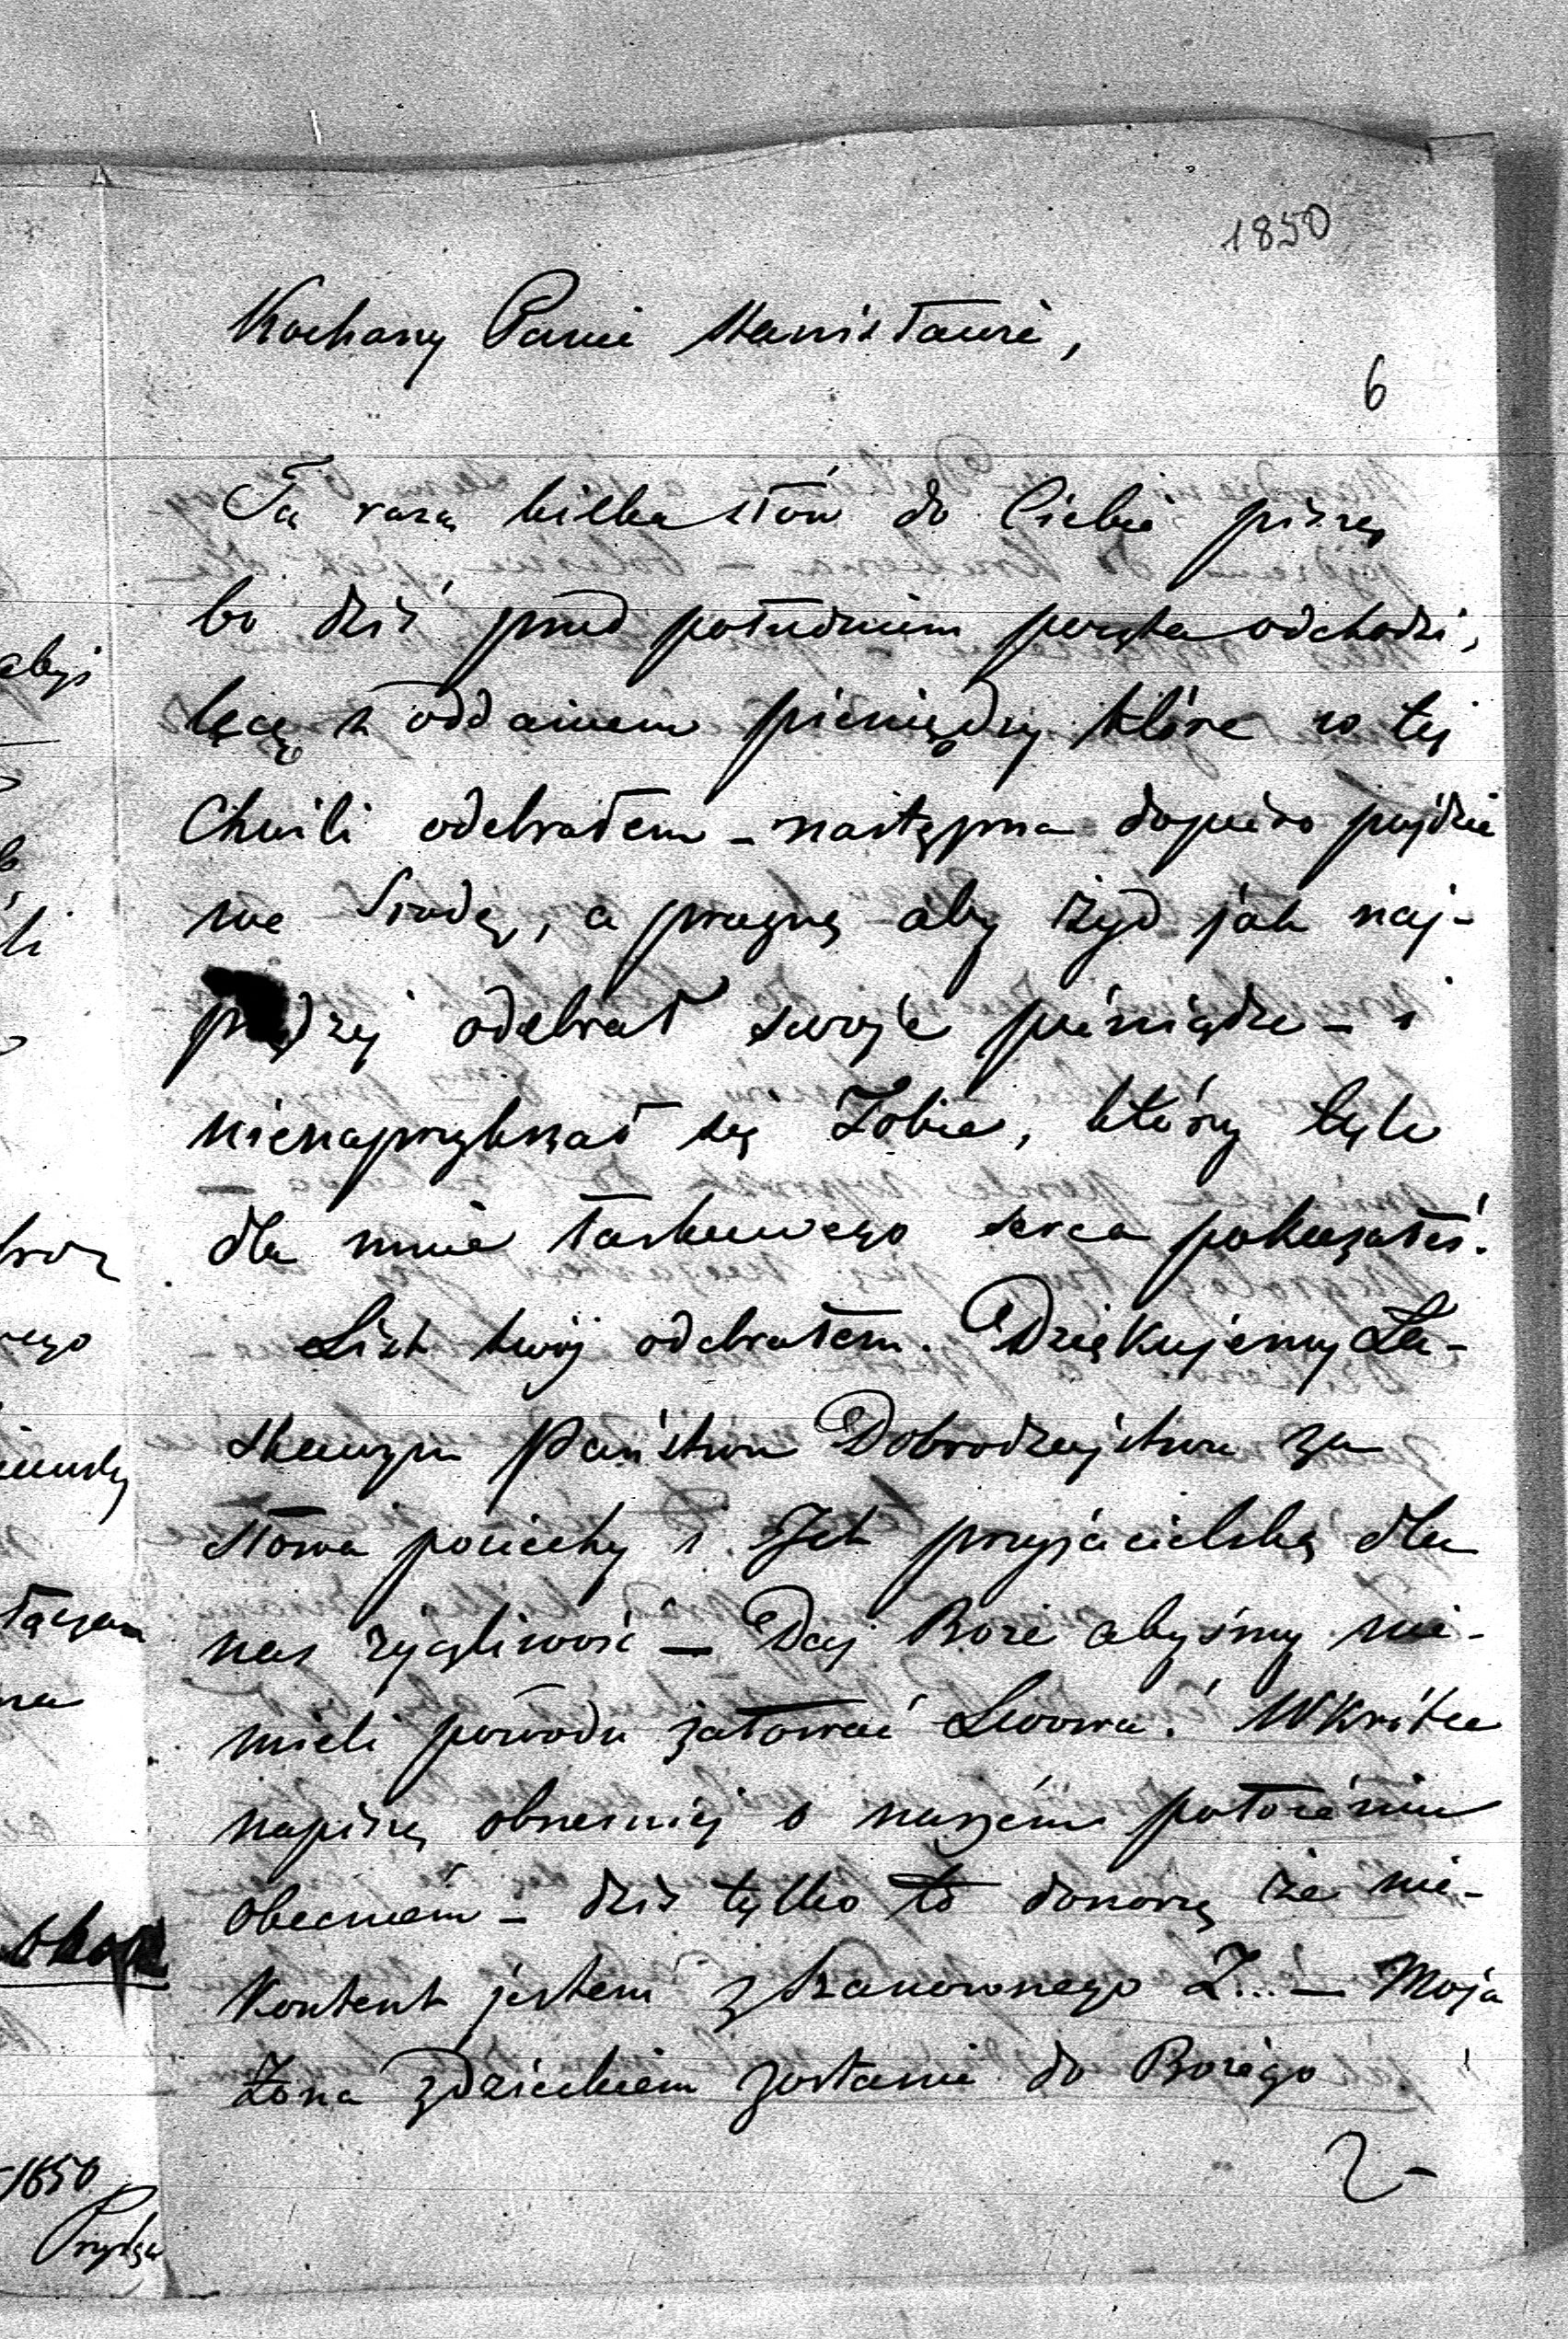 1850
Kochany Panie Stanisławie,
6
Tą razą kilka słów do Ciebie piszę
bo dziś przed południem poczta odchodzi,
lęcę z oddaniem pieniędzy które w tej
Chwili odebrałem – następna dopiero pójdzie
we Środę, a pragnę aby żyd jak naj-
prędzej odebrał swoje pieniądze – i
nienaprzykrzał się Tobie, który tyle
dla mnie łaskawego serca pokazałeś.
List twój odebrałem. Dziękujemy Ła-
skawym Państwu Dobrodziejstwu za
słowa pociechy i Jch przyjacielską dla
nas życzliwość – Daj Boże abyśmy nie-
mieli powodu żałować Lwowa! Wkrótce
napiszę obszerniej o naszém położeniu
obecném – dziś tylko to donoszę że nie-
kontent jestem z Szanownego Z... – Moja
Żona z dzieckiem zostanie do Bożego
abyś
li
1850